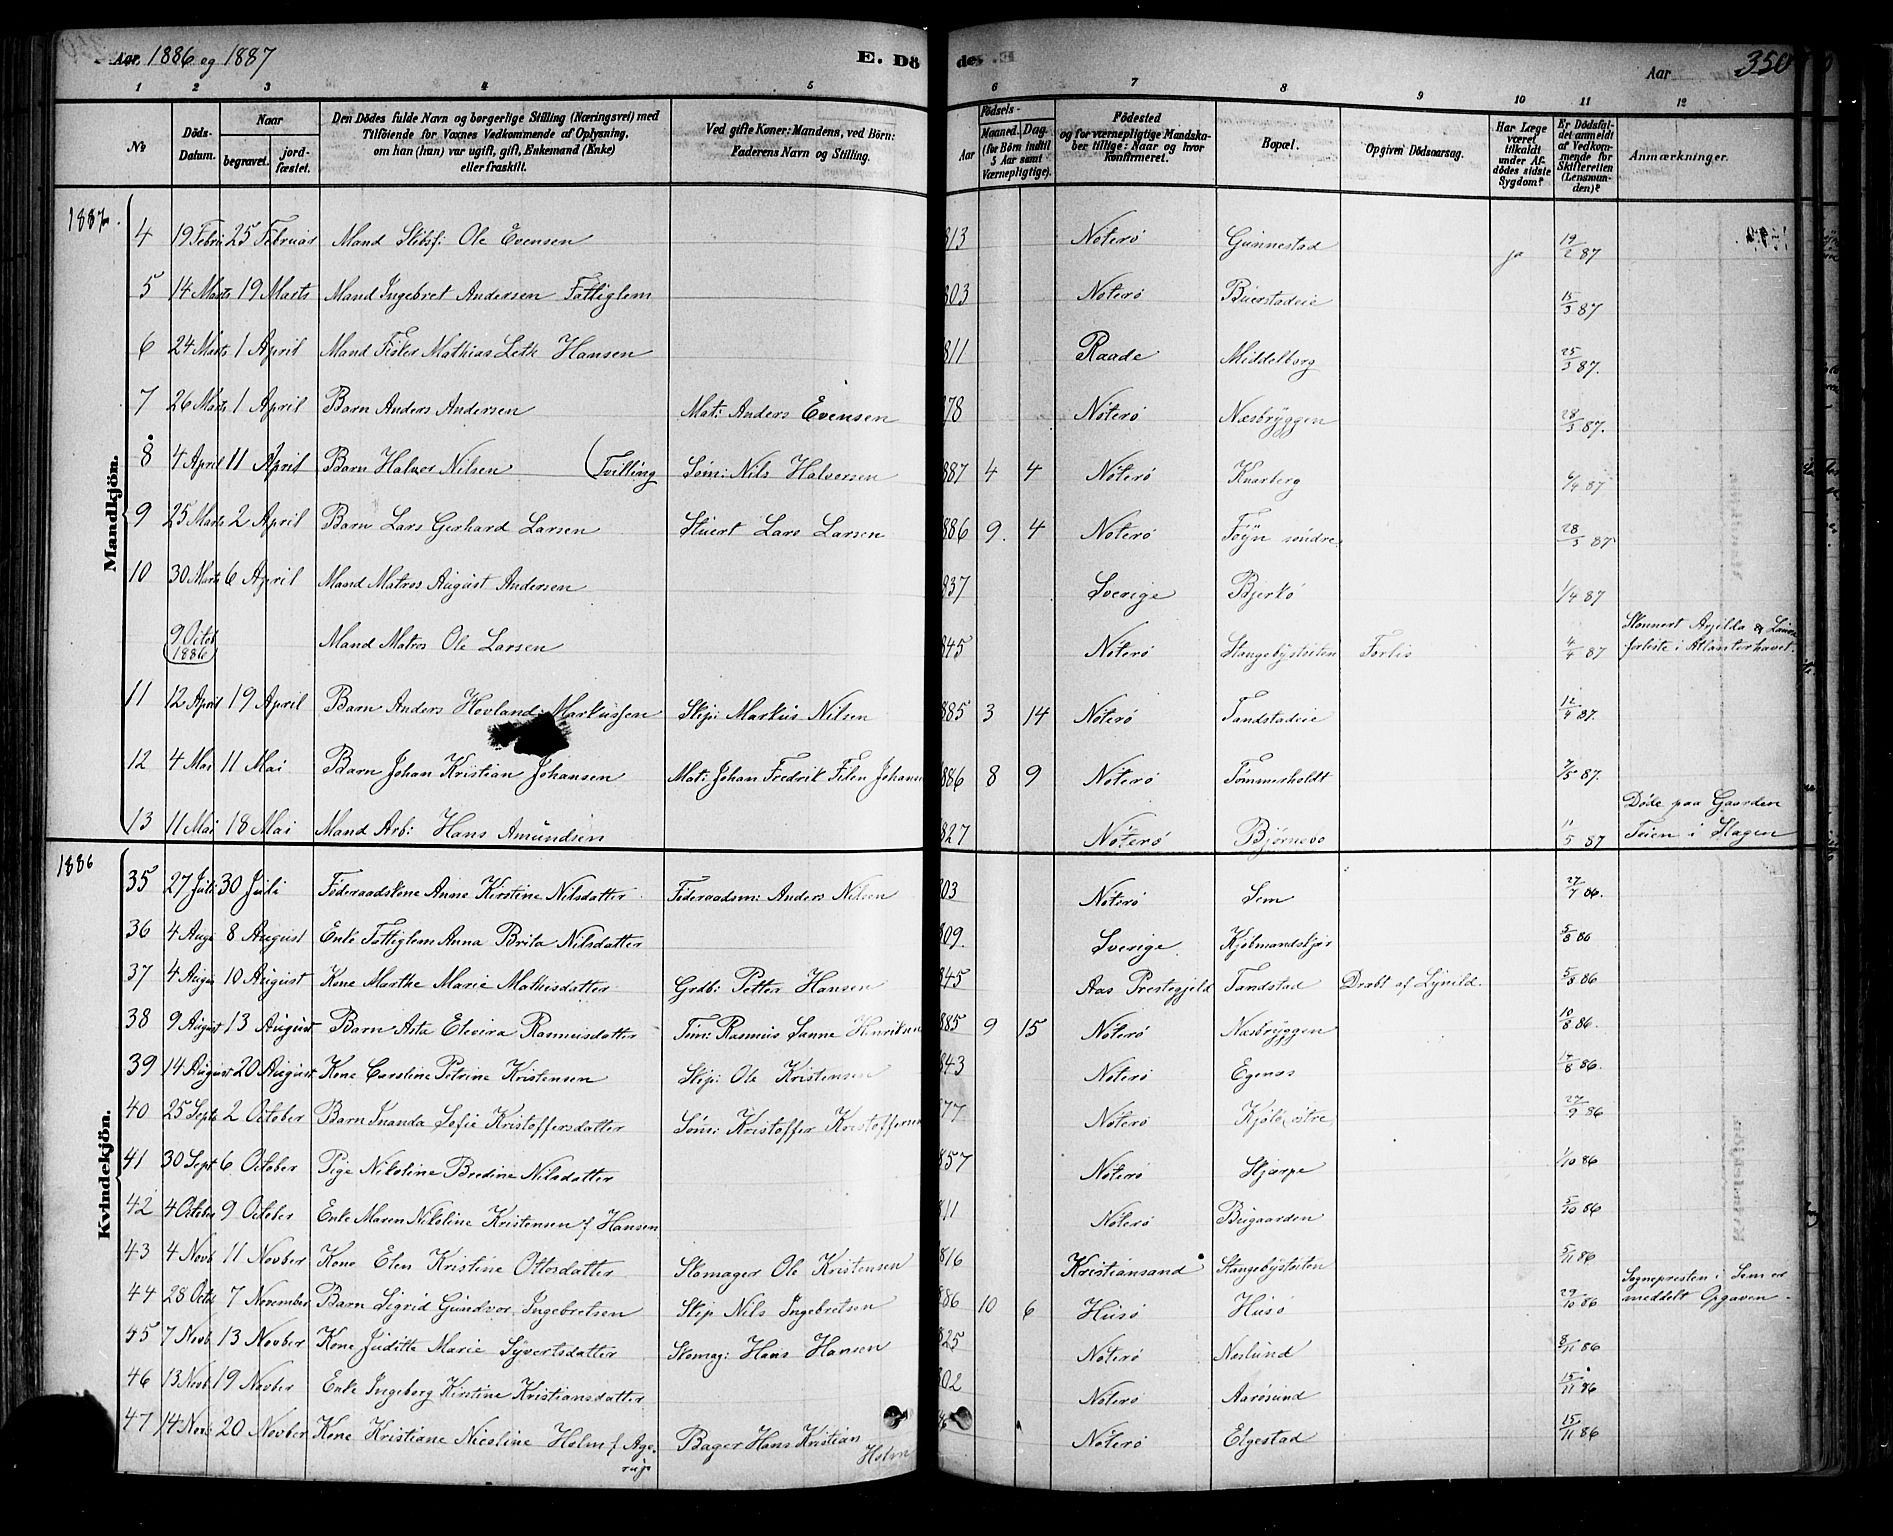 Aar 1886 og 1887 E. Dö des Aar 350
1 2 3 4 5 6 7 8 9 10 11 12
No
Döds-Datum.
Naar
begravet. jord-fæstet.
Den Dödes fulde Navn og borgerlige Stilling (Næringsvei) med Tilföiende for Voxnes Vedkommende af Oplysning, om han (hun) var ugift, gift, Enkemand (Enke) eller fraskilt.
Ved gifte Koner: Mandens, ved Börn: Faderens Navn og Stilling.
Födsels-
Aar Maaned. Dag.
(for Börn indtil 5 Aar samt Værnepligtige).
Födested og for værnepligtige Mandskaber tillige: Naar og hvor Konfirmeret.
Bopæl.
Opgiven Dödsaarsag.
Har Læge været tilkaldt under Afdödes sidste Sygdom?
Er Dödsfaldet anmeldt af Vedkommende for Skifteretten (Lensmanden)?
Anmærkninger.
Mandkjön.
1887.
4 19 Febru 25 Februar Mand Skibsf: Ole Evensen 813 Nøterø Gunnestad ja 19/2 87
5 14 Marts 19 Marts Mand Ingebret Andersen Fattiglem 803 Nøterø Buerstadeie 15/3 87
6 24 Marts 1 April Mand Fisker Mathias Leth Hansen 811 Raade Middelborg 25/3 87.
7 26 Marts 1 April Barn Anders Andersen Mat: Anders Evensen 878 Nøterø Næsbryggen 28/3 87.
8 4 April 11 April Barn Halvor Nilsen (Tvilling Søm: Nils Halvorsen 887 4 4 Nøterø Knarberg 6/4 87
9 25 Marts 2 April Barn Lars Gerhard Larsen Stuert Lars Larsen 886 9. 4 Nøterø Føyn søndre 28/3 87
10 30 Marts 6 April Mand Matros August Andersen 837 Sverige Bjerkø 1/4 87
9 Octob 1886 Mand Matros Ole Larsen 845 Nøterø Stangebystøiten Forlis 4/4 87 Skonnert forliste i Atlanterhavet.
11 12 April 19 April Barn Anders Hovland Markussen Skip: Markus Nilsen 885 3 14 Nøterø Tandstadeie 12/4 87.
12 4 Mai 11 Mai Barn Johan Kristian Johansen Mat: Johan Fredrik Johans 886 8 9 Nøterø Tømmerholdt 7/5 87.
13 11 Mai 18 Mai Mand Arb: Hans Amundsen 827 Nøterø Bjørnebo 11/5 87 Døde paa Gaarden Teien i Slagen
Kvindekjön.
1886
35 27 Juli 30 Juli Føderaadskone Anne Kirstine Nilsdatter Føderaadsm: Anders Nilsen 803 Nøterø Sem 27/7 86.
36 4 Aug 8 August Enke Fattiglem Anna Brita Nilsdatter 809. Sverige Kjøbmandskjær 5/8 86
37 4 Augu 10 August Kone Marthe Marie Mathisdatter Grdb: Petter Hansen 845 Aas Prestegjeld Tandstad Dræbt af Lynild. 5/8 86
38 9 August 13 August Barn Asta Elvira Rasmusdatter Tøm: Rasmus Sanne Henriksen 885 9 15 Nøterø Næsbryggen 10/8 86.
39 14 August 20 August Kone Caroline Petrine Kristensen Skip: Ole Kristensen 843 Nøterø Egenes 17/8 86.
40 25 Septb 2 October Barn Inanda Sofie Kristoffersdatter Søm: Kristoffer Kristoffersen 877 Nøterø Kjøle østre 27/9 86
41 30 Sept. 6 October Pige Nikoline Bredine Nilsdatter 857 Nøterø Skjærpe 1/10 86
42 4 October 9 October Enke Maren Nikoline Kristensen f Hansen 811 Nøterø Bugaarden 5/10 86
43 4 Novb 11 Novber Kone Elen Kristine Ottosdatter Skomager Ole Kristensen 816 Kristiansand Stangebystøiten 5/11 86
44 28 Octb 7 November Barn Sigrid Gundvor Ingebretsen Skip Nils Ingebretsen 886 10 6 Husø Husø 29/10 86 Sognepresten i Sem er meddelt Opgaven.
45 7 Novb 13 Novber Kone Juditte Marie Syvertsdatter Skomag: Hans Hansen 825 Nøterø Næslund 8/11 86
46 13 Novb 19 Novber Enke Ingeborg Kirstine Kristiansdatter 802 Nøterø Aarøsund 15/11 86
47 14 Nov: 20 Novber Kone Kristiane Nicoline Holm f Agerup Bager Hans Kristian Holm Nøterø Elgestad 15/11 86